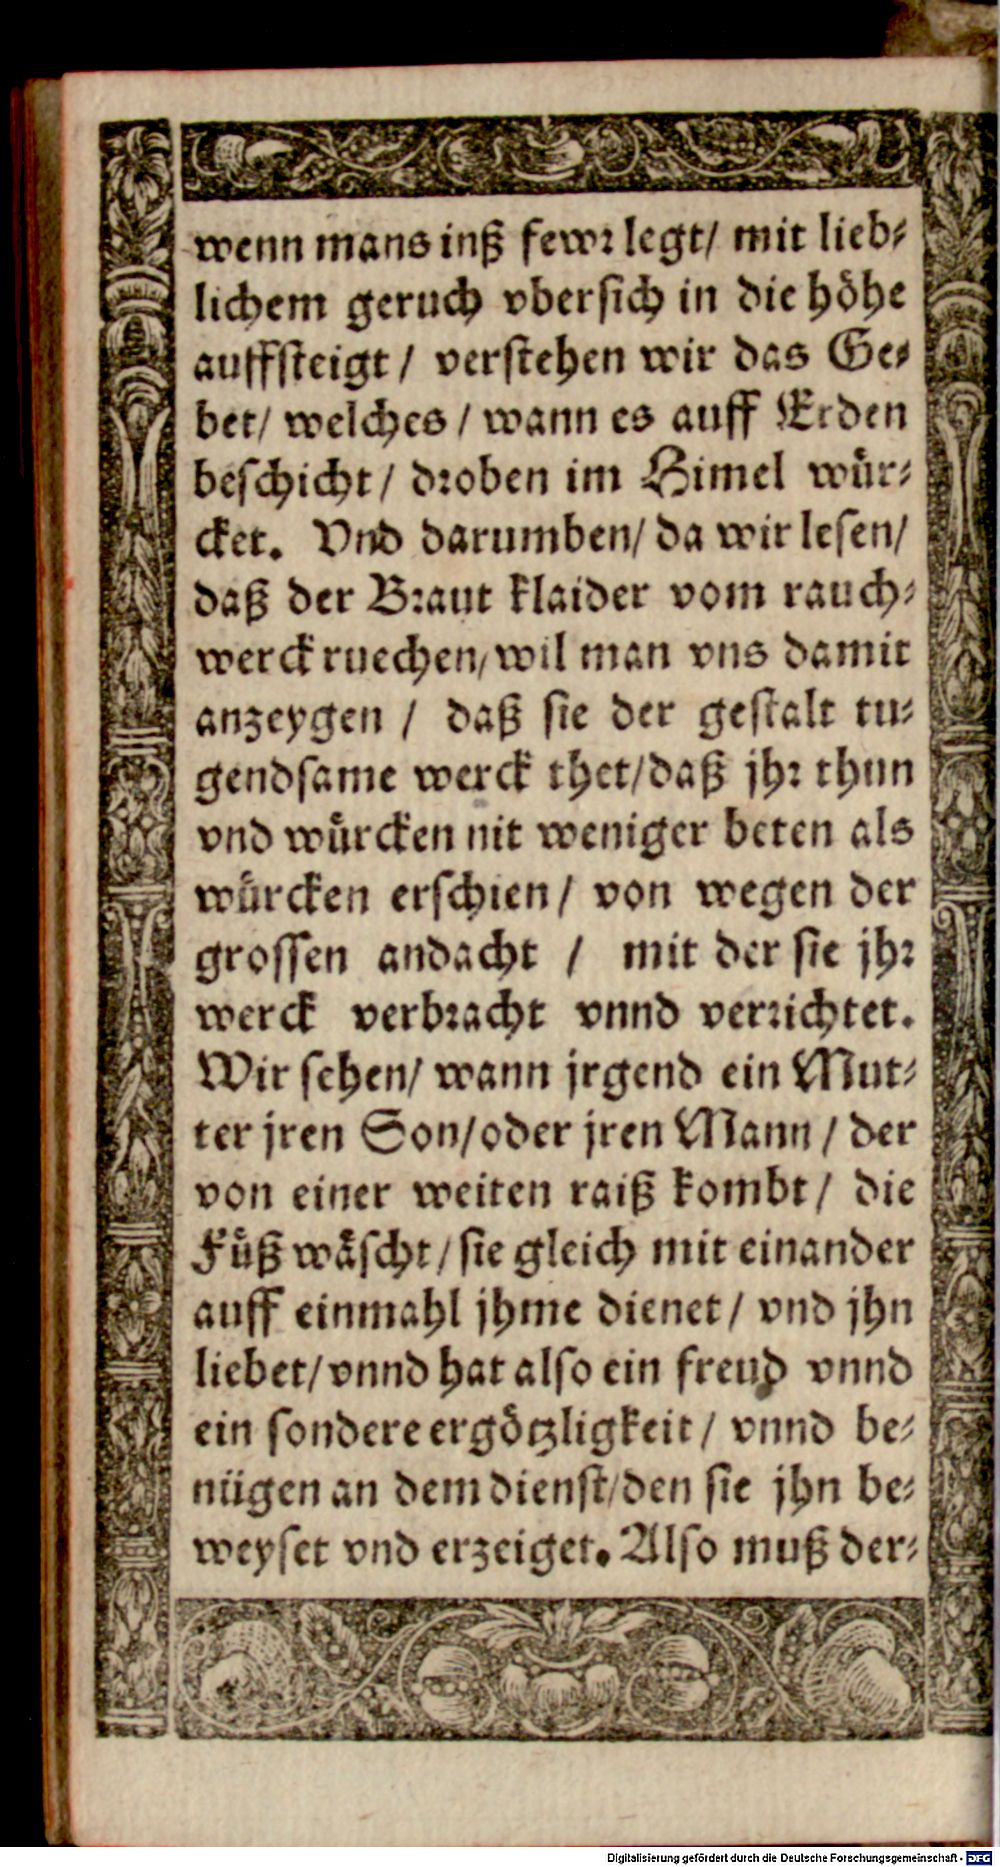 wenn mans inß fewr legt/ mit lieb-
lichem geruch vbersich in die höhe
auffsteigt / verstehen wir das Ge-
bet/ welches / wann es auff Erden
beschicht / droben im Himel wür-
cket. Vnd darumben/ da wir lesen/
daß der Braut klaider vom rauch-
werck ruechen/ wil man vns damit
anzeygen / daß sie der gestalt tu-
gendsame werck thet/daß jhr thun
vnd würcken nit weniger beten als
würcken erschien / von wegen der
grossen andacht / mit der sie jhr
werck verbracht vnnd verrichtet.
Wir sehen/ wann jrgend ein Mut-
ter jren Son/oder jren Mann / der
von einer weiten raiß kombt / die
Füß wäscht / sie gleich mit einander
auff einmahl jhme dienet / vnd jhn
liebet/ vnnd hat also ein freud vnnd
ein sondere ergötzligkeit / vnnd be-
nügen an dem dienst/den sie jhn be-
weyset vnd erzeiget. Also muß der-
Digitalisierung gefördert durch die Deutsche Forschungsgemeinschaft - DFG